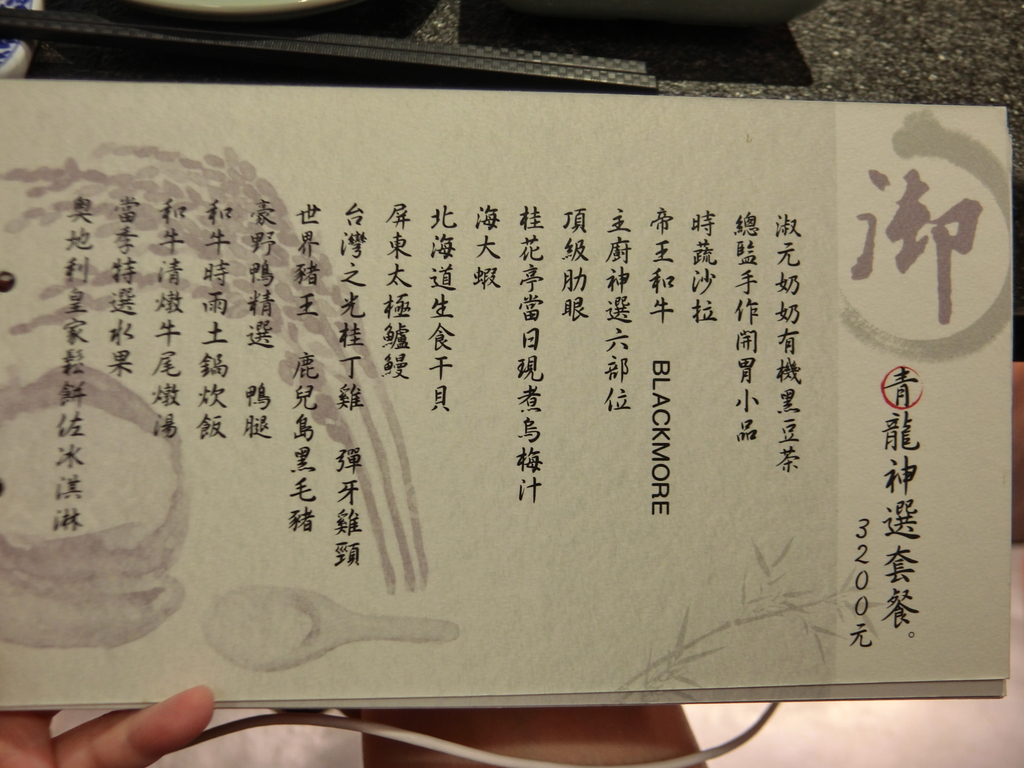 御
青龍神選套餐。
3200元
淑元奶奶有機黑豆茶
總監手作開胃小品
時蔬沙拉
帝王和牛 BLACKMORE
主廚神選六部位
頂級肋眼
桂花亭當日現煮烏梅汁
海大蝦
北海道生食干貝
屏東太極鱸鰻
台灣之光桂丁雞 彈牙雞頸
世界豬王 鹿兒島黑毛豬
豪野鴨精選 鴨腿
和牛時雨土鍋炊飯
和牛清燉牛尾燉湯
當季特選水果
奧地利皇家鬆餅佐冰淇淋